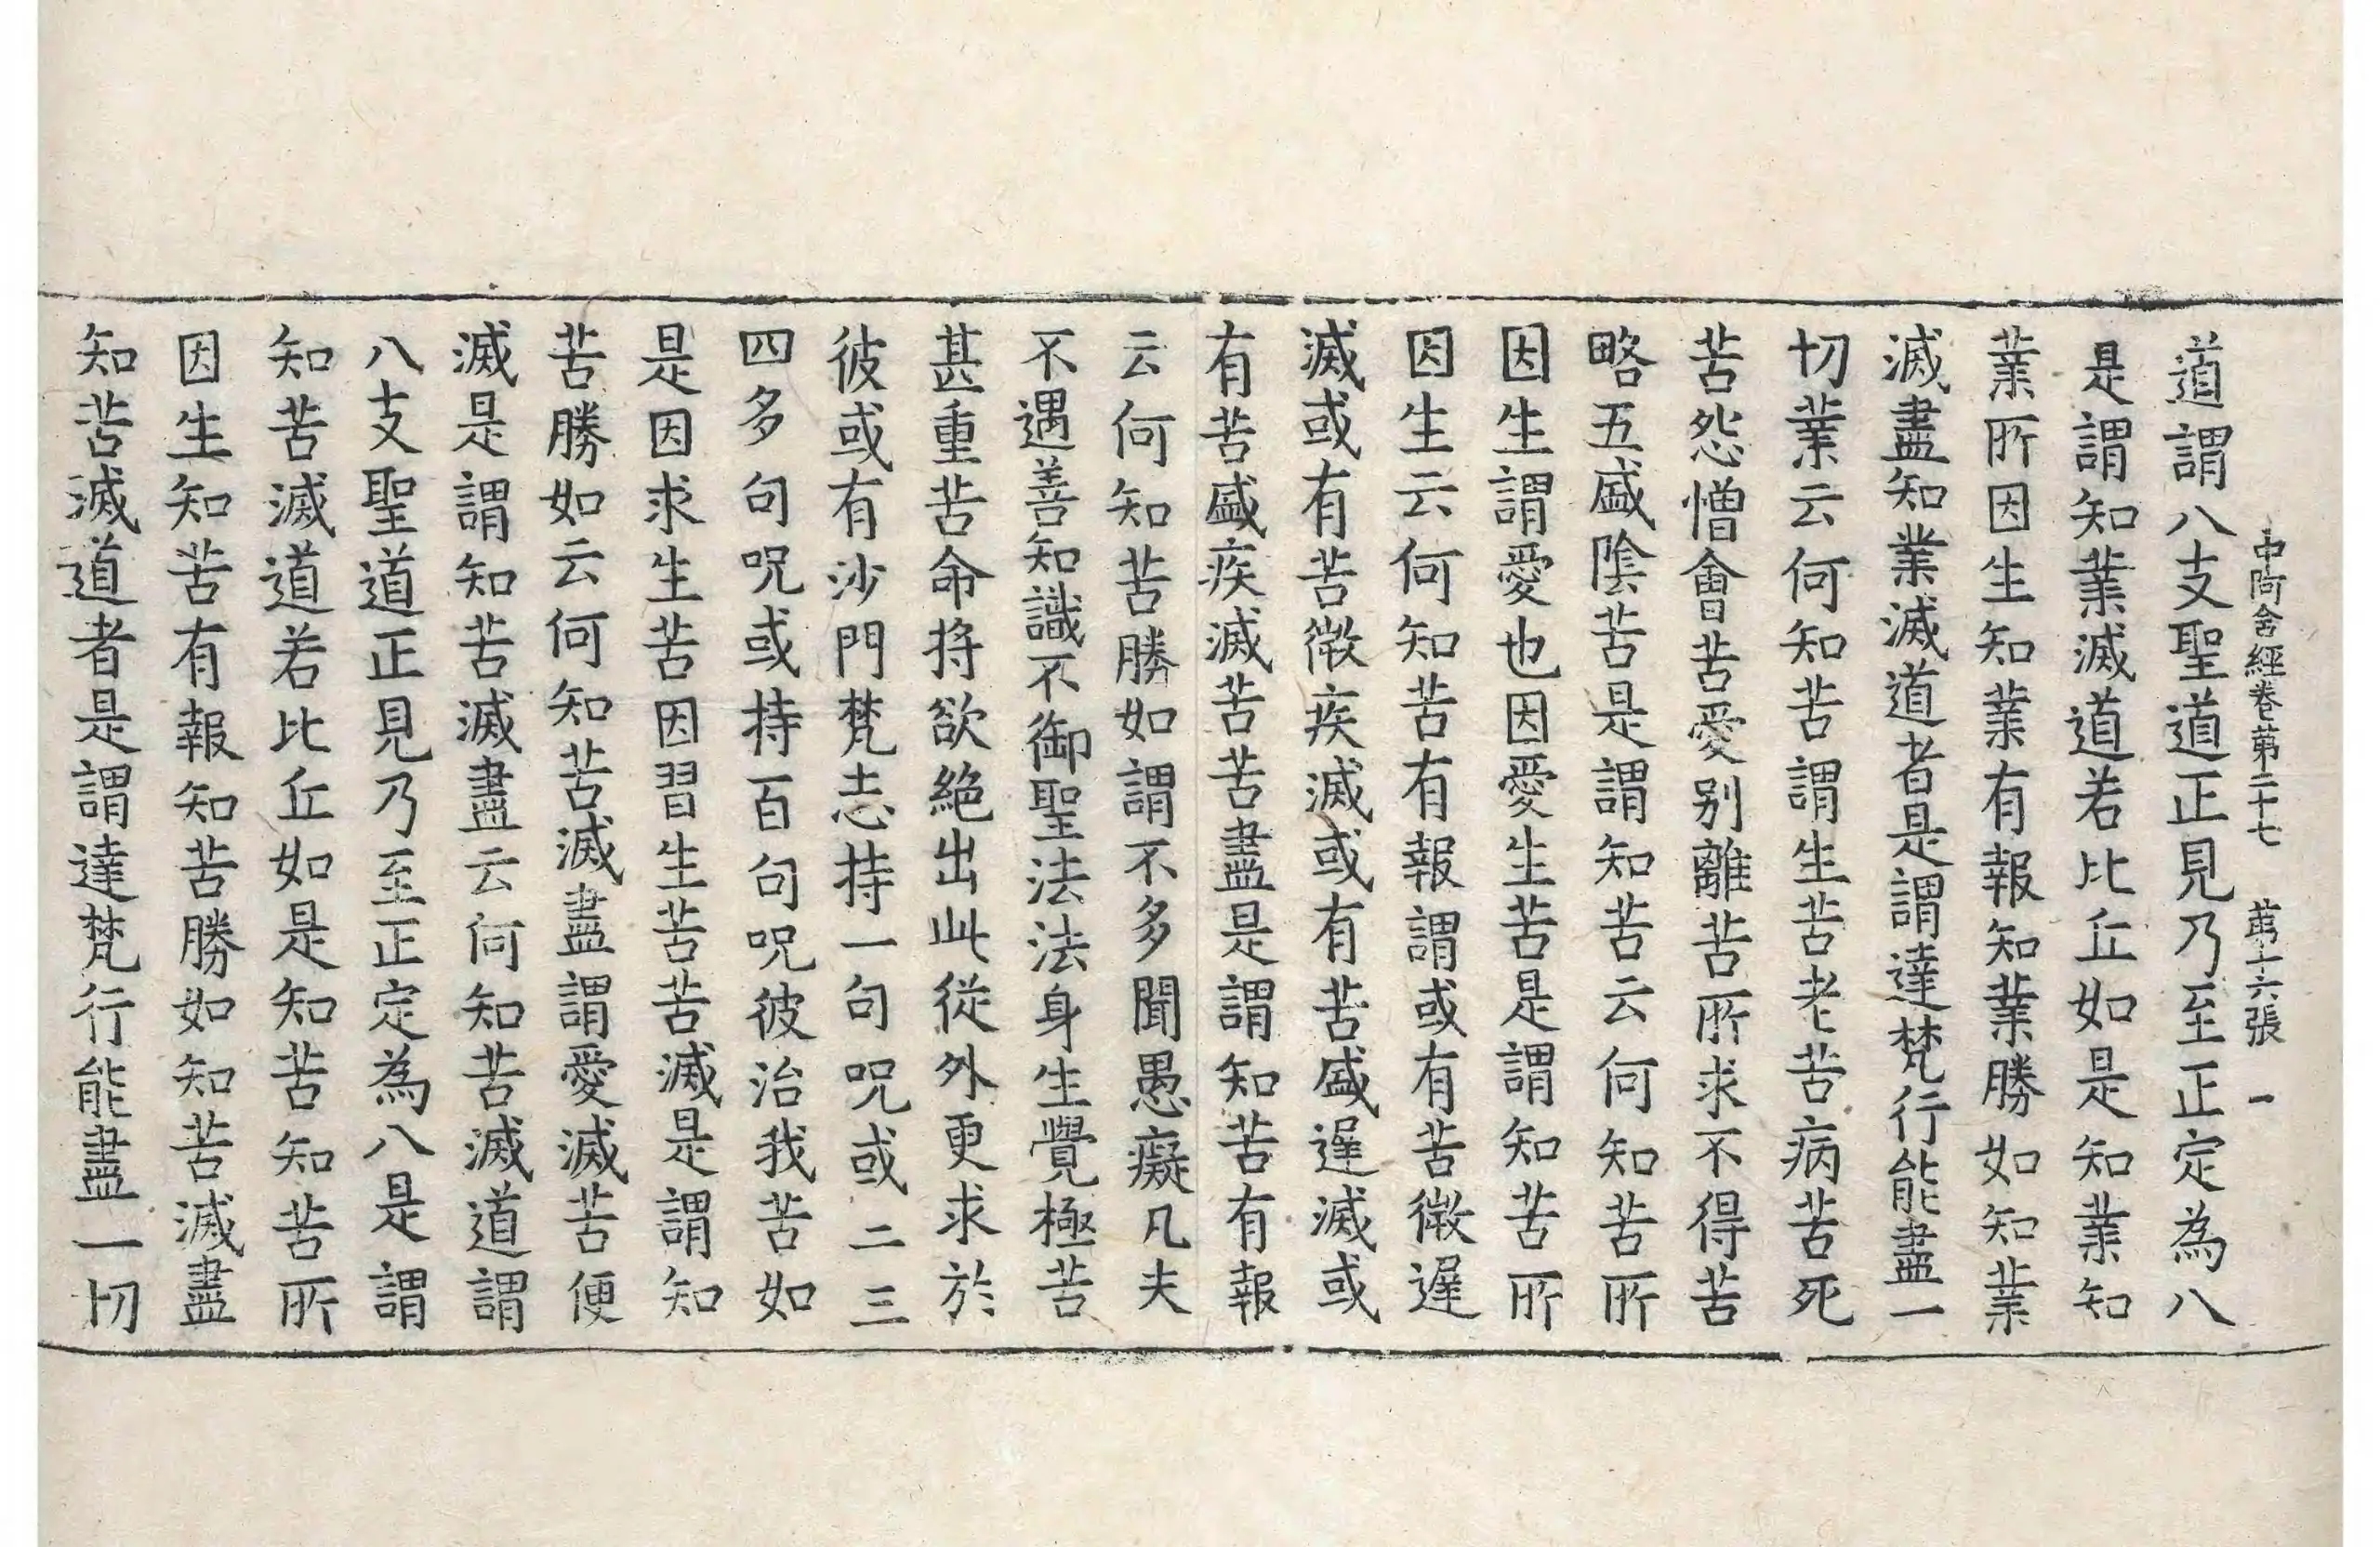 中阿含經卷第二十七 第十六張 一
道謂八支聖道正見乃至正定為八
是謂知業滅道若比丘如是知業知
業所因生知業有報知業勝如知業
滅盡知業滅道者是謂達梵行能盡一
切業云何知苦謂生苦老苦病苦死
苦怨憎會苦愛别離苦所求不得苦
略五盛陰苦是謂知苦云何知苦所
因生謂愛也因愛生苦是謂知苦所
因生云何知苦有報謂或有苦微遟
滅或有苦微疾滅或有苦盛遟滅或
有苦盛疾滅苦苦盡是謂知苦有報
云何知苦勝如謂不多聞愚癡凡夫
不遇善知識不御聖法法身生覺極苦
甚重苦命将欲絶出此從外更求於
彼或有沙門梵志持一句呪或二三
四多句呪或持百句呪彼治我苦如
是因求生苦因習生苦苦滅是謂知
苦勝如云何知苦滅盡謂愛滅苦便
滅是謂知苦滅盡云何知苦滅道謂
八支聖道正見乃至正定為八是謂
知苦滅道若比丘如是知苦知苦所
因生知苦有報知苦勝如知苦滅盡
知苦滅道者是謂達梵行能盡一切